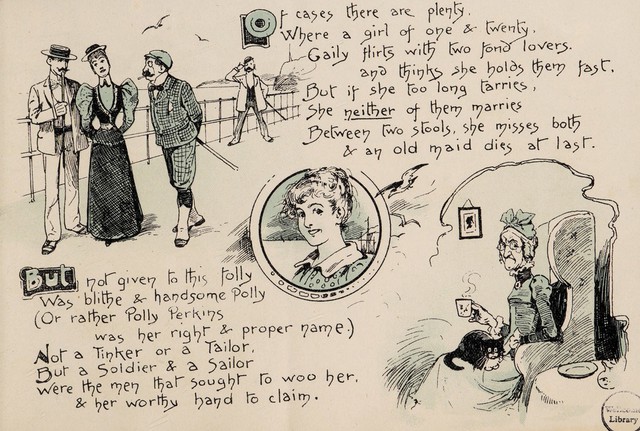 Of cases there are plenty,
Where a girl of one & twenty,
Gaily flirts with two fond lovers.
and thinks she holds them fast.
But if she too long tarries,
She neither of them marries
Between two stools, she misses both
& an old maid dies at last.
But not given to this folly
Was blithe & handsome Polly
(Or rather Polly Perkins
was her right & proper name.)
Not a Tinker or a Tailor,
But a Soldier & a Sailor
Were the men that sought to woo her,
& her worthy hand to claim.
Library